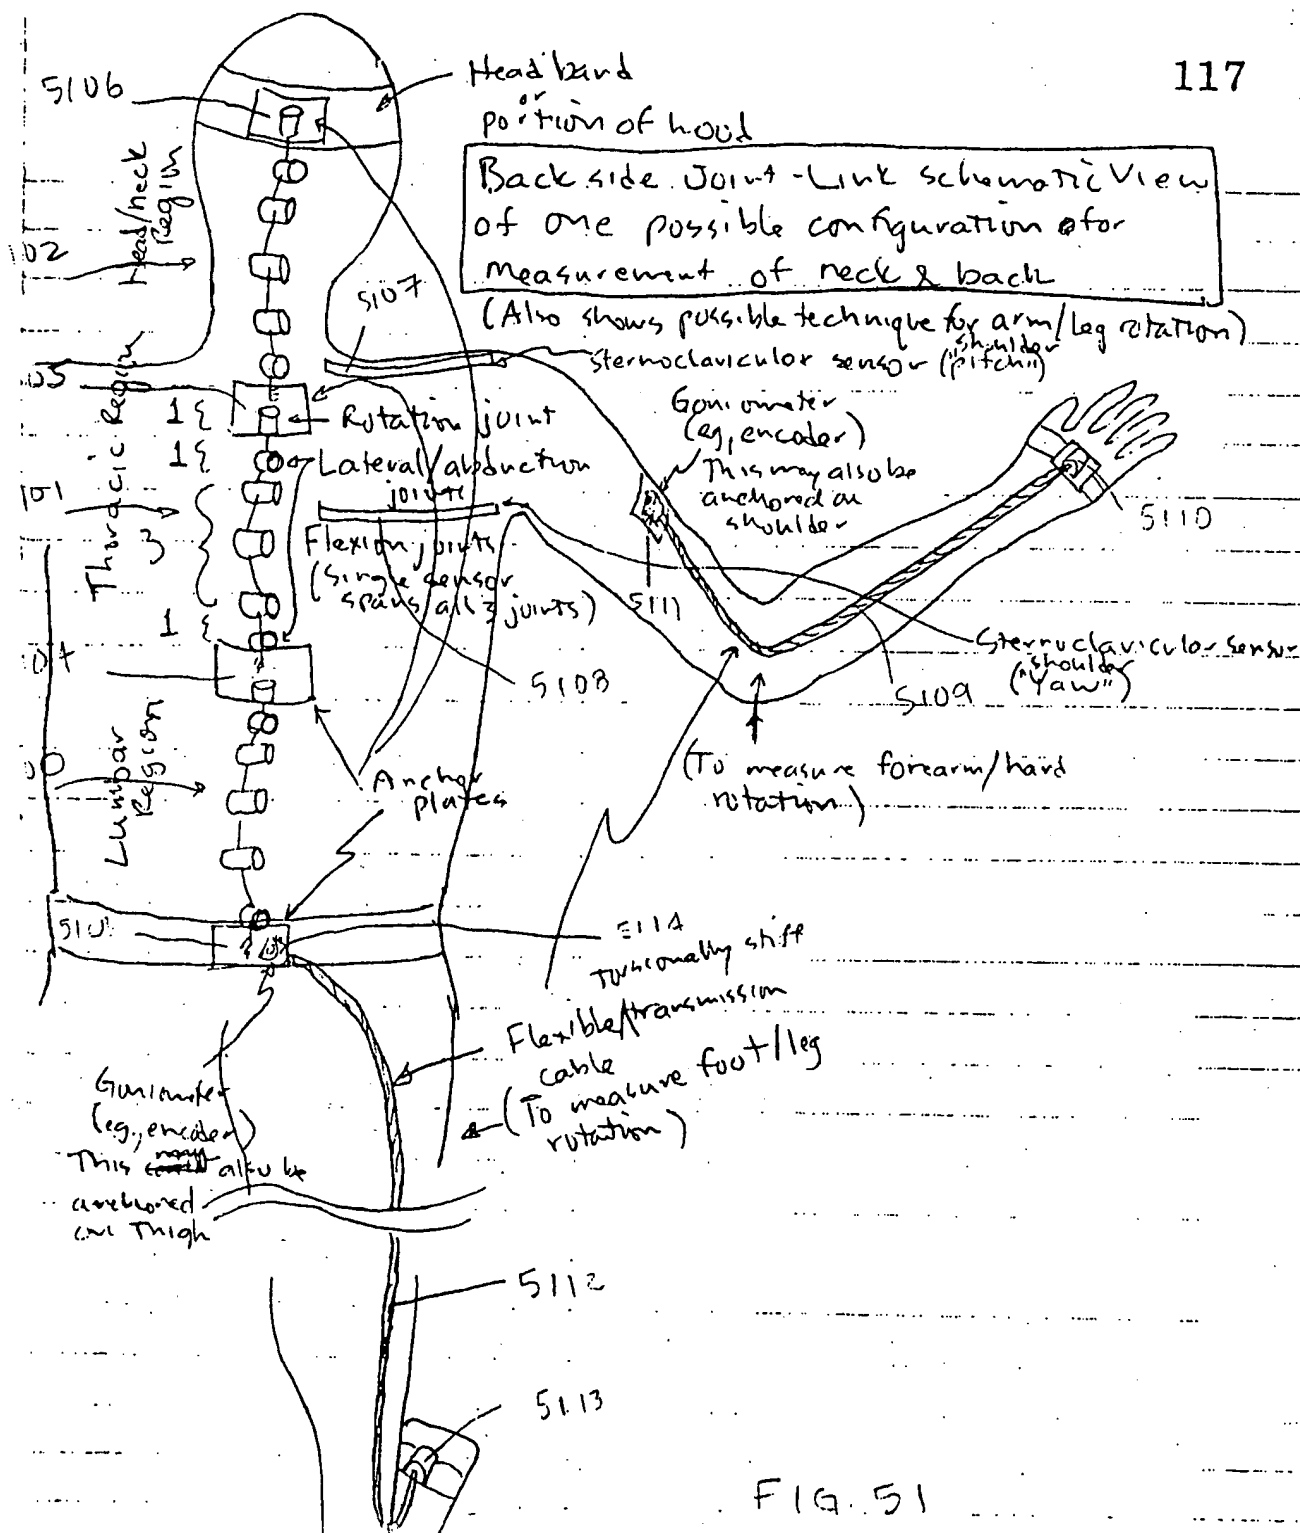 117
5106
Headband
or
portion of hood
Back side Joint-Link schematic View
of one possible configuration for
measurement of neck & back
(Also shows possible technique for arm/leg rotation)
Head/neck
Region
102
5107
sternoclavicular sensor (shoulder "pitch")
Thoracic Region
1{
Rotation joint
1{
Lateral/abduction
joints
101
3
Flexion joints
(single sensor
spans all 3 joints)
1{
Goniometer
(eg, encoder)
This may also be
anchored on
shoulder
5110
5111
Sternoclavicular sensor
(shoulder "Yaw")
5108
5109
(To measure forearm/hand
rotation)
Lumbar
Region
Anchor
plates
5114
Torsionally stiff
Flexible/transmission
cable
(To measure foot/leg
rotation)
Goniometer
(eg., encoder)
This may also be
anchored
on Thigh
5112
5113
FIG. 51